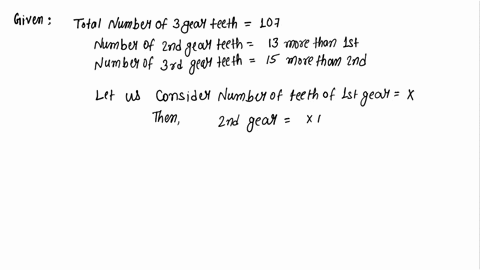 Given : Total Number of 3 gear teeth = 107
Number of 2nd gear teeth = 13 more than 1st
Number of 3rd gear teeth = 15 more than 2nd
Let us Consider Number of teeth of 1st gear = x
Then, 2nd gear = x1